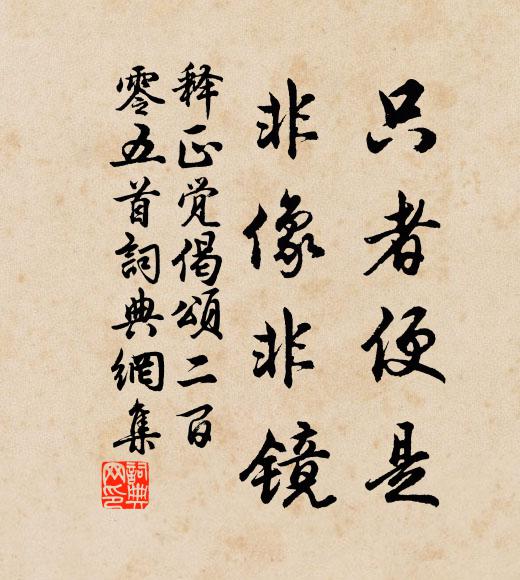 只者便是
非像非镜
释正觉偈颂二百
零五首詞典網集
詞典
网印